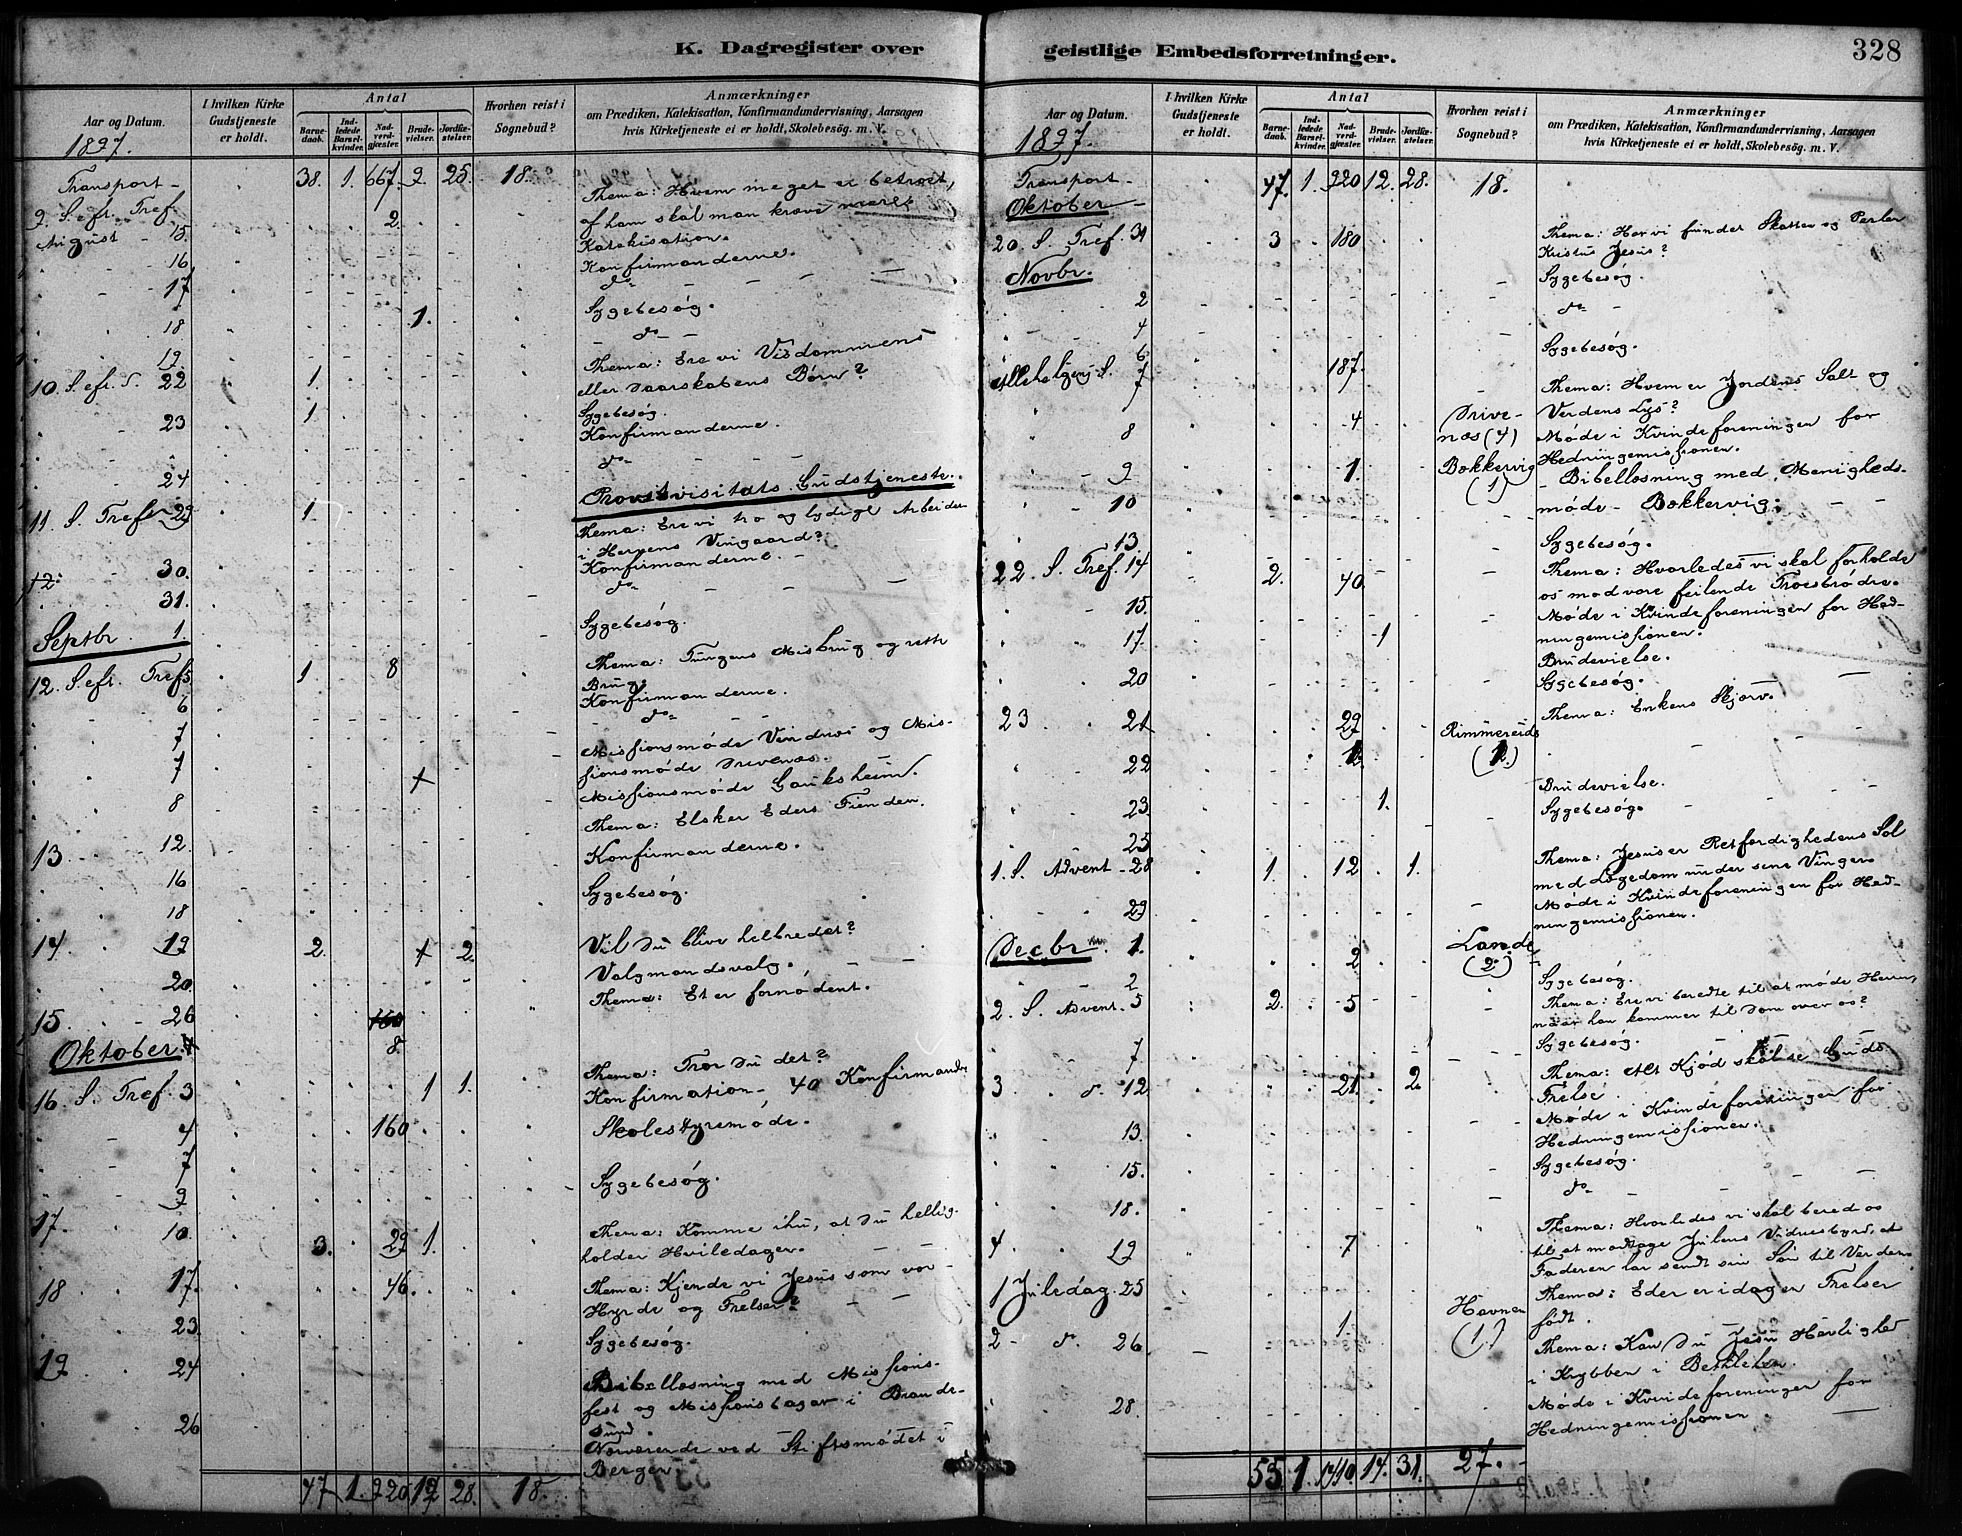 K. Dagregister over geistlige Embedsforretninger.
328
Aar og Datum.
1897.
I hvilken Kirke Gudstjeneste er holdt.
Antal
Barne-daab.
Ind-ledede Barsel-kvinder.
Nad-verd-gjæster.
Brude-vielser.
Jordfæ-stelser.
Hvorhen reist i Sognebud?
Anmærkninger
om Prædiken, Katekisation, Konfirmandundervisning, Aarsagen
hvis Kirketjeneste ei er holdt, Skolebesög. m. V.
Transport - 38. 1. 667. 9. 25. 18. Thema: Hvem meget er betroet,
9. S. eft. Tref. 2. af ham skal man kræve mere
August - 15. Katekisation.
16 Konfirmanderne.
17 do
Sygebesøg.
18 1. do
19. Thema: Ere vi Visdommens
10. S. eft. 22 1. eller Daarskabens Børn?
Sygebesøg.
23 1 Konfirmanderne.
do
24 Provstvisitats Gudstjeneste.
11. S. Tref. 29 1. Thema: Ere vi tro og lydige Arbeider
i Herrens Vingaard?
30. Konfirmanderne.
31. do
Septbr. 1. Sygebesøg.
12. S. eft. Tref. 5 1 8 Thema: Tungens Misbrug og rette
Brug.
6 Konfirmanderne.
do
7 Missionsmøde Vendnes og Mis-
7 sionsmøde Drivenæs.
8 Missionsmøde Gauksheim.
Thema: Elsker Eders Fiender.
13 12. Konfirmanderne.
16 Sygebesøg.
18
14. 19 2. 2. Vil Du blive helbredet?
20. Valgmandsvalg.
15. 26 Thema: Et er fornødent.
Oktober. 8.
16 S. Tref. 3 1 1. Thema: Tror Du det?
Konfirmation, 40 Konfirmander
4 160 Skolestyremøde.
7
9 Sygebesøg.
17. 10. 3. 29 1. Thema: Komme ihu, at Du hellig-
holder Hviledagen.
18 17. 46. Thema: Kjende vi Jesus som vor
Hyrde og Frelser?
23. Sygebesøg.
19. 24 Bibellæsning med Missions-
fest og Missionsbasar i Brande-
sund.
26 Nærværende ved Stiftsmødet i
Bergen
47 1. 920 12 28. 18.
Aar og Datum.
1897.
I hvilken Kirke Gudstjeneste er holdt.
Antal
Barne-daab.
Ind-ledede Barsel-kvinder.
Nad-verd-gjæster.
Brude-vielser.
Jordfæ-stelser.
Hvorhen reist i Sognebud?
Anmærkninger
om Prædiken, Katekisation, Konfirmandundervisning, Aarsagen
hvis Kirketjeneste ei er holdt, Skolebesög. m. V.
Transport - 47. 1. 920 12. 28. 18.
Oktober
20. S. Tref. 31 3 180 Thema: Har vi fundet Skatten og Perlen
Kristus Jesus?
Novbr. Sygebesøg.
2 do
4
6 Sygebesøg.
Allehelgens S. 7 187. Thema: Hvem er Jordens Salt og
Verdens Lys?
8 4 Drive-næs (4) Møde i Kvindeforeningen for
Hedningemissionen.
9 1. Bækkervig (1) Bibellæsning med Menigheds-
10 møde - Bækkervig.
13. Sygebesøg.
22. S. Tref. 14 2. 40. Thema: Hvorledes vi skal forholde
os mod vore feilende Troesbrødre.
15. Møde i Kvindeforeningen for Hed-
17. 1 ningemissionen.
Brudevielse.
20 Sygebesøg.
Thema: Enkens Skjærv.
23 21 29 Rimmereide
22 (1)
23. 1. Brudevielse.
25 Sygebesøg.
1. S. Advent - 28 1. 12 1. Thema: Jesus er Retfærdighedens Sol
med Lægedom under sine Vinger.
29 Møde i Kvindeforeningen for Hed-
ningemissionen.
Decbr. 1. 2 Lande (2)
2 Sygebesøg.
2. S. Advent. 5 2. 5 Thema: Ere vi beredte til at møde Herren,
naar han kommer til Dom over os?
7 Sygebesøg.
3 12 21. 2 Thema: Alt Kjød skal se Guds
Frelse.
13. Møde i Kvindeforeningen for
Hedningemissionen.
15. Sygebesøg.
18. do
4 19 7 Thema: Hvorledes vi skal berede os
til at modtage Julens Vidnesbyrd, at
Faderen har sendt sin Søn til Verden
1 Juledag. 25 Thema: Eder er idag en Frelser
født.
2 - do 26 1. Havnen (1.) Thema: Kan Du se Jesu Herlighed
i Krybben i Bethlehem.
28. Møde i Kvindeforeningen for
Hedningemissionen.
55 1. 1410. 14. 31. 27.